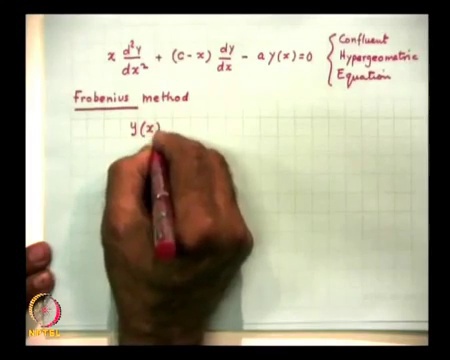 x d²y/dx² + (c-x) dy/dx - a y(x) = 0 { Confluent
Hypergeometric
Equation
Frobenius method
y(x)
NPTEL